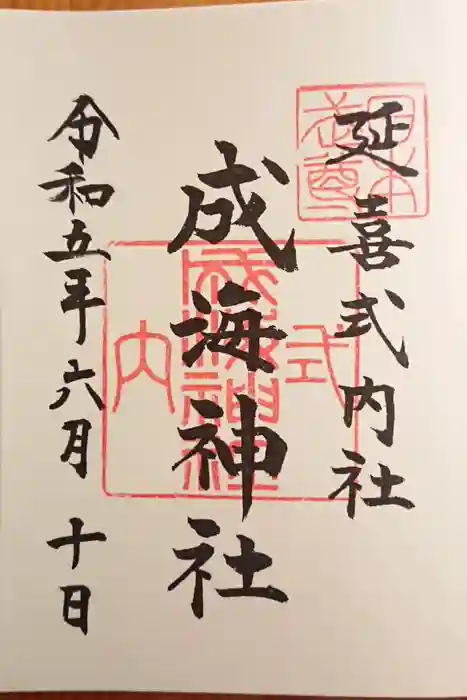 延喜式内社
成海神社
令和五年六月十日
日本武尊
式内
成海神社